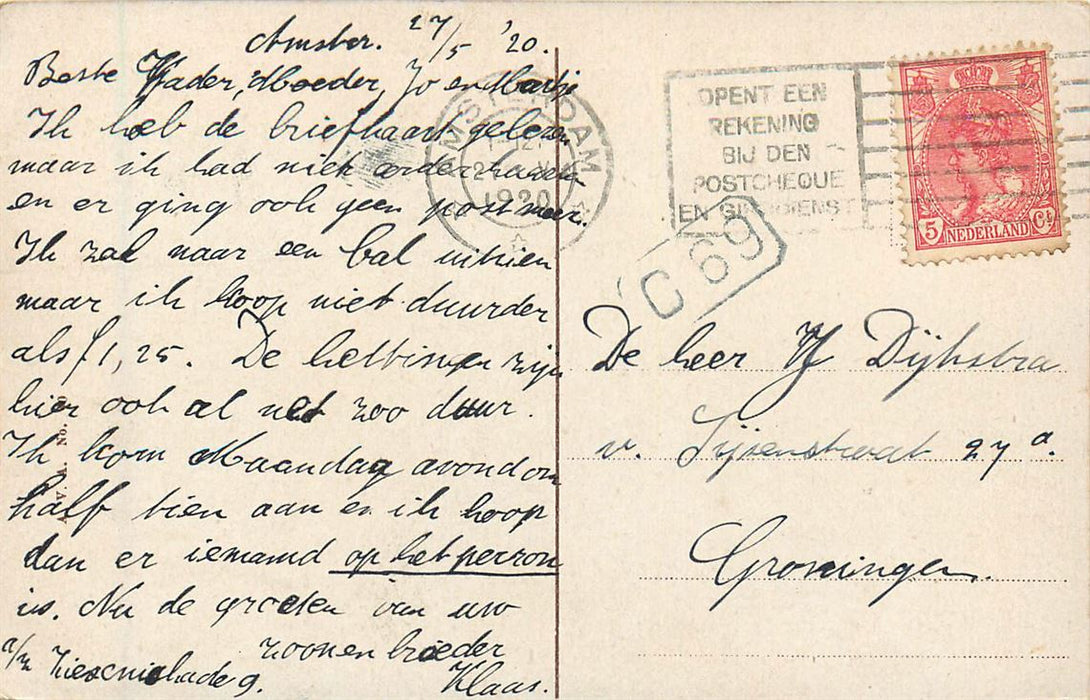 Amster. 27/5 '20.
Beste Vader, Moeder, Jo en
Ik heb de briefkaart gelezen
maar ik had niet
en er ging ook geen post meer.
Ik zal naar een bal uitzien
maar ik koop niet duurder
als f 1,25. De zijn
hier ook al net zoo duur.
Ik kom Maandag avond om
half tien aan en ik hoop
dan er iemand op het perron
is. Nu de groeten van uw
zoon en broeder
Klaas.
a/z 9.
AMSTERDAM
1920
OPENT EEN
REKENING
BIJ DEN
POSTCHEQUE
EN GIRODIENST
C 69
5 NEDERLAND Ct
De heer Dijkstra
v. Sijsenstraat 27a.
Groningen.
V. A. No.